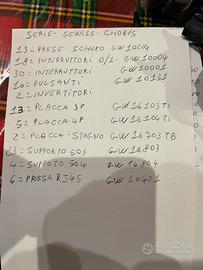 SERIE - GEWISS - CHORUS
13 = PRESE - SCHUKO GW 10
18 = INTERRUTORI 0/1. GW 10004
30 = INTERRUTTORI GW 10001
10 = PULSANTI GW 10131
2 = INVERTITORI
13 = PLACCA 3P GW 16103 Ti
5 = PLACCA 4P GW 16104 Ti
2 = PLACCA - STAGNO GW 16703 TB
= SUPPORTO 503 GW 16803
4 = SUPPOTO 504 GW 16804
6 = PRESA RJ45 GW 10421
Subito